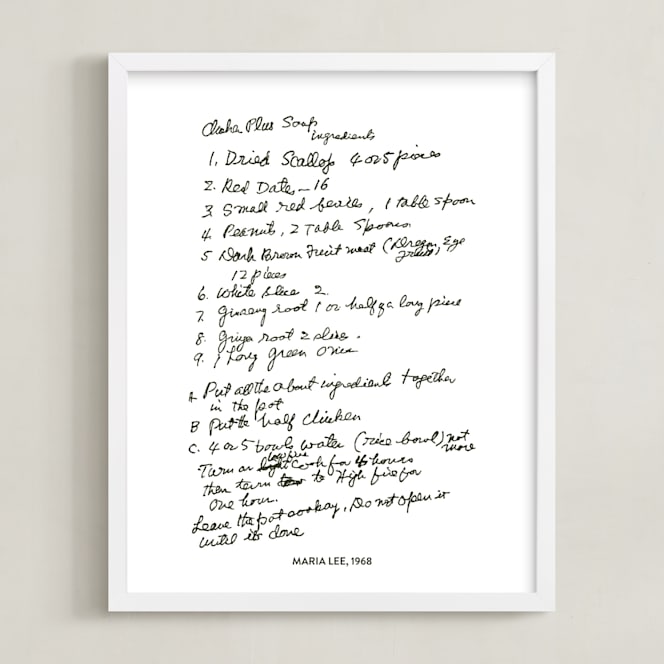 Aloha Plus Soup
ingredients
1. Dried Scallop 4 or 5 pieces
2. Red Dates - 16
3. Small red berries, 1 table spoon
4. Peanuts, 2 Table Spoons.
5 Dark Brown Fruit meat (Dragon Eye
fruit)
12 pieces
6. White slice 2.
7. Ginseng root 1 or half of a long piece
8. Ginger root 2 slice.
9. 1 Long green Onion
A Put all the about ingredients together
in the pot
B Put the half Chicken
C. 4 or 5 bowls water (rice bowl) not
more
Turn on low fire Cook for 4 hours
then turn to High fire for
One hour.
Leave the pot cooking, Do not open it
until it's done
MARIA LEE, 1968